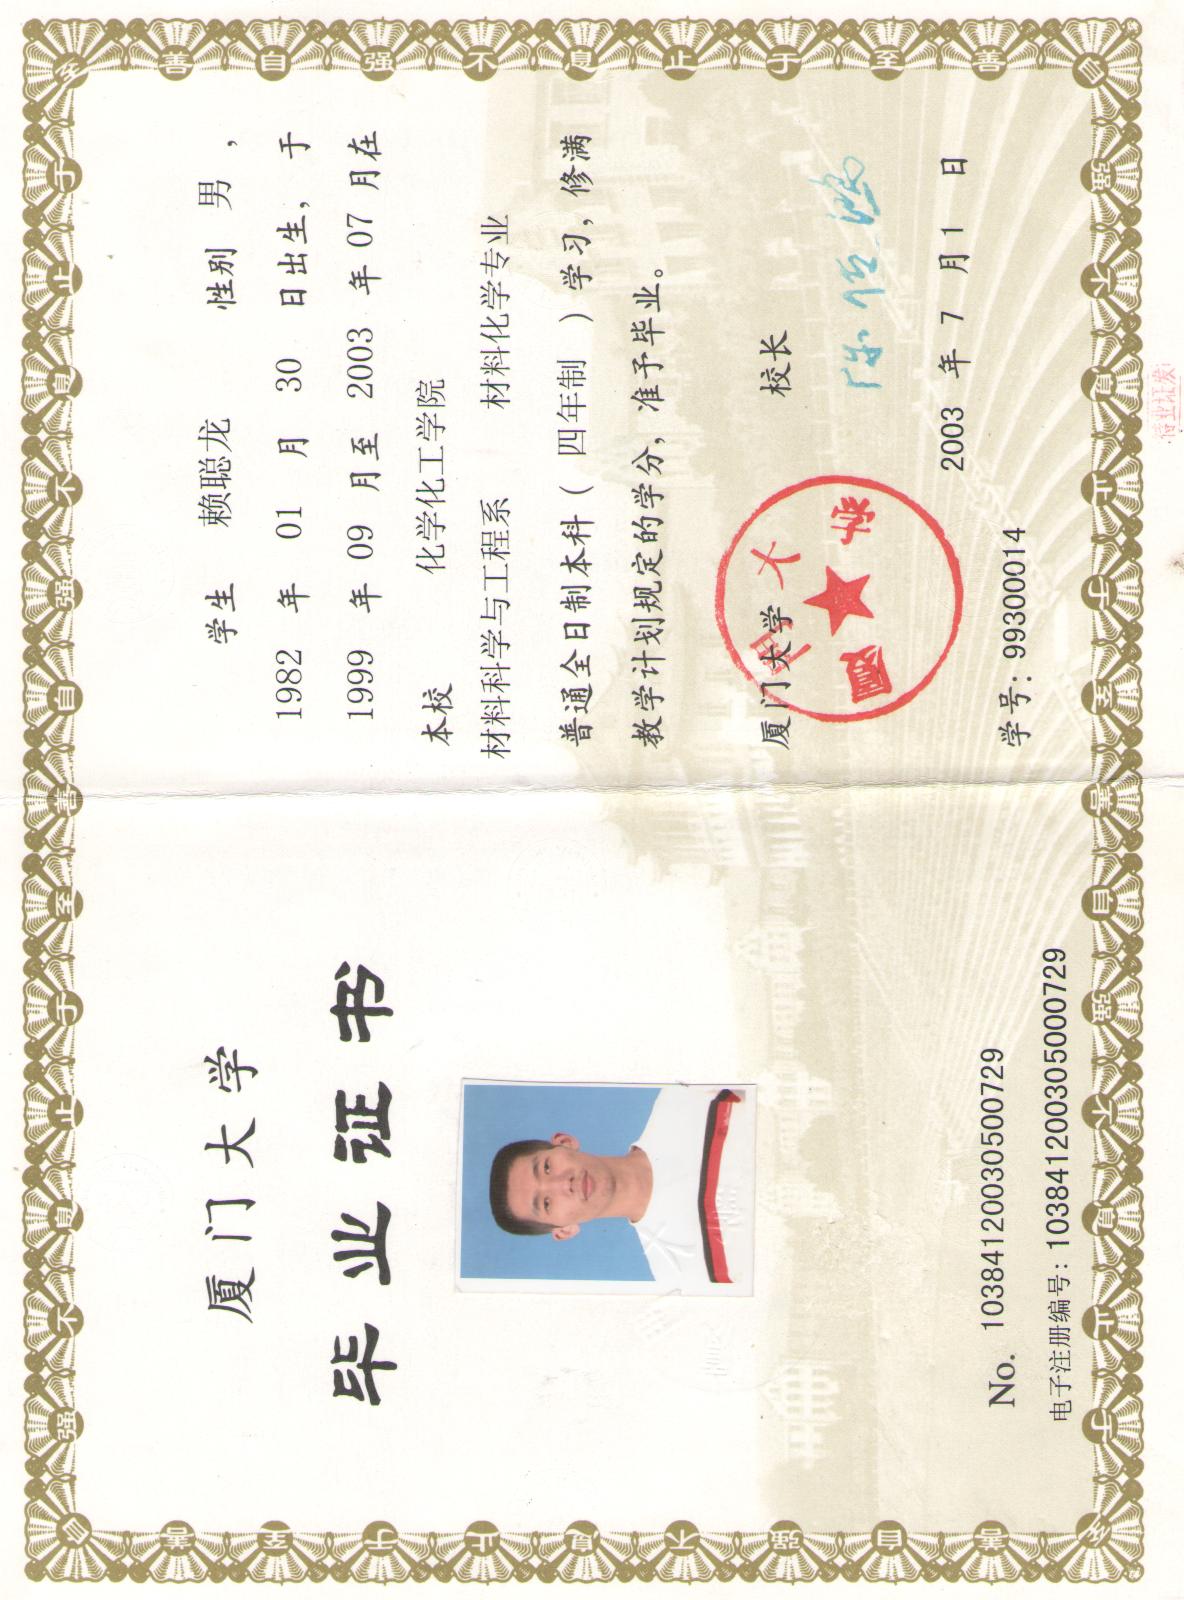 厦门大学
毕业证书
No. 103841200305000729
电子注册编号: 103841200305000729
学生 赖聪龙 性别 男 ,
1982 年 01 月 30 日出生, 于
1999 年 09 月至 2003 年 07 月在
本校 化学化工学院
材料科学与工程系 材料化学专业
普通全日制本科 ( 四年制 ) 学习, 修满
教学计划规定的学分, 准予毕业。
厦门大学 校长
厦门大学
2003 年 7 月 1 日
学号: 99300014
待业证发
自强不息止于至善